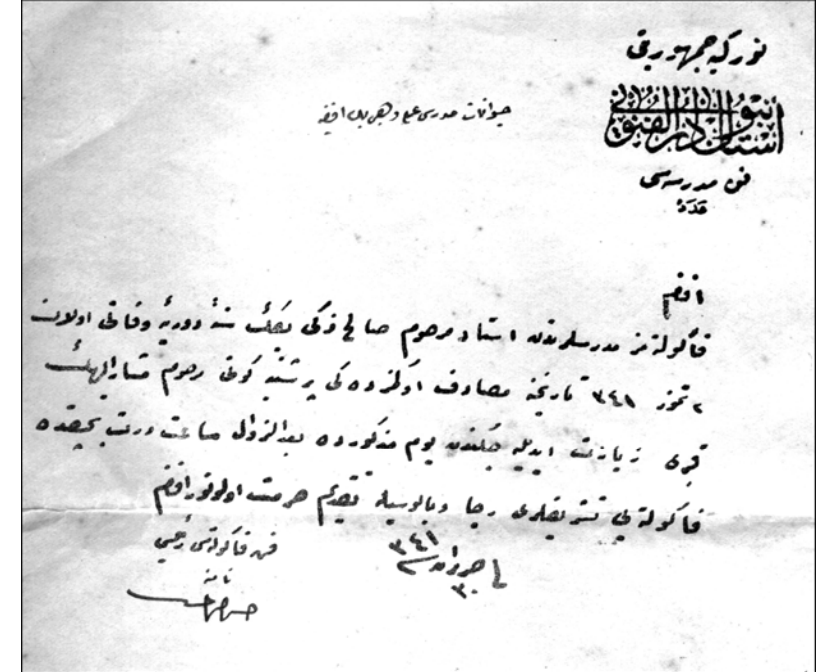 توركيه جمهوريتى
استانبول دار الفنونى
فن مدرسه سى
عدد
حيوانات مدرسى على وهبى بك افندى
افندم
فاكولته مز مدرسلرندن استاد مرحوم صالح ذكى بكك سنۀ دوريۀ وفاتى اولان
٢ تموز ٣٤١ تاريخنه مصادف اوكمزده كى پرشنبه كونى مرحوم مشاراليهك
قبرى زيارت ايديله جكندن يوم مذكورده بعدالزوال ساعت درت بچقده
فاكولته يى تشريفلرى رجا وبالوسيله تقديم حرمت اولنور افندم
٣٠ حزيران ٣٤١
فن فاكولته سى رئيسى
نامنه